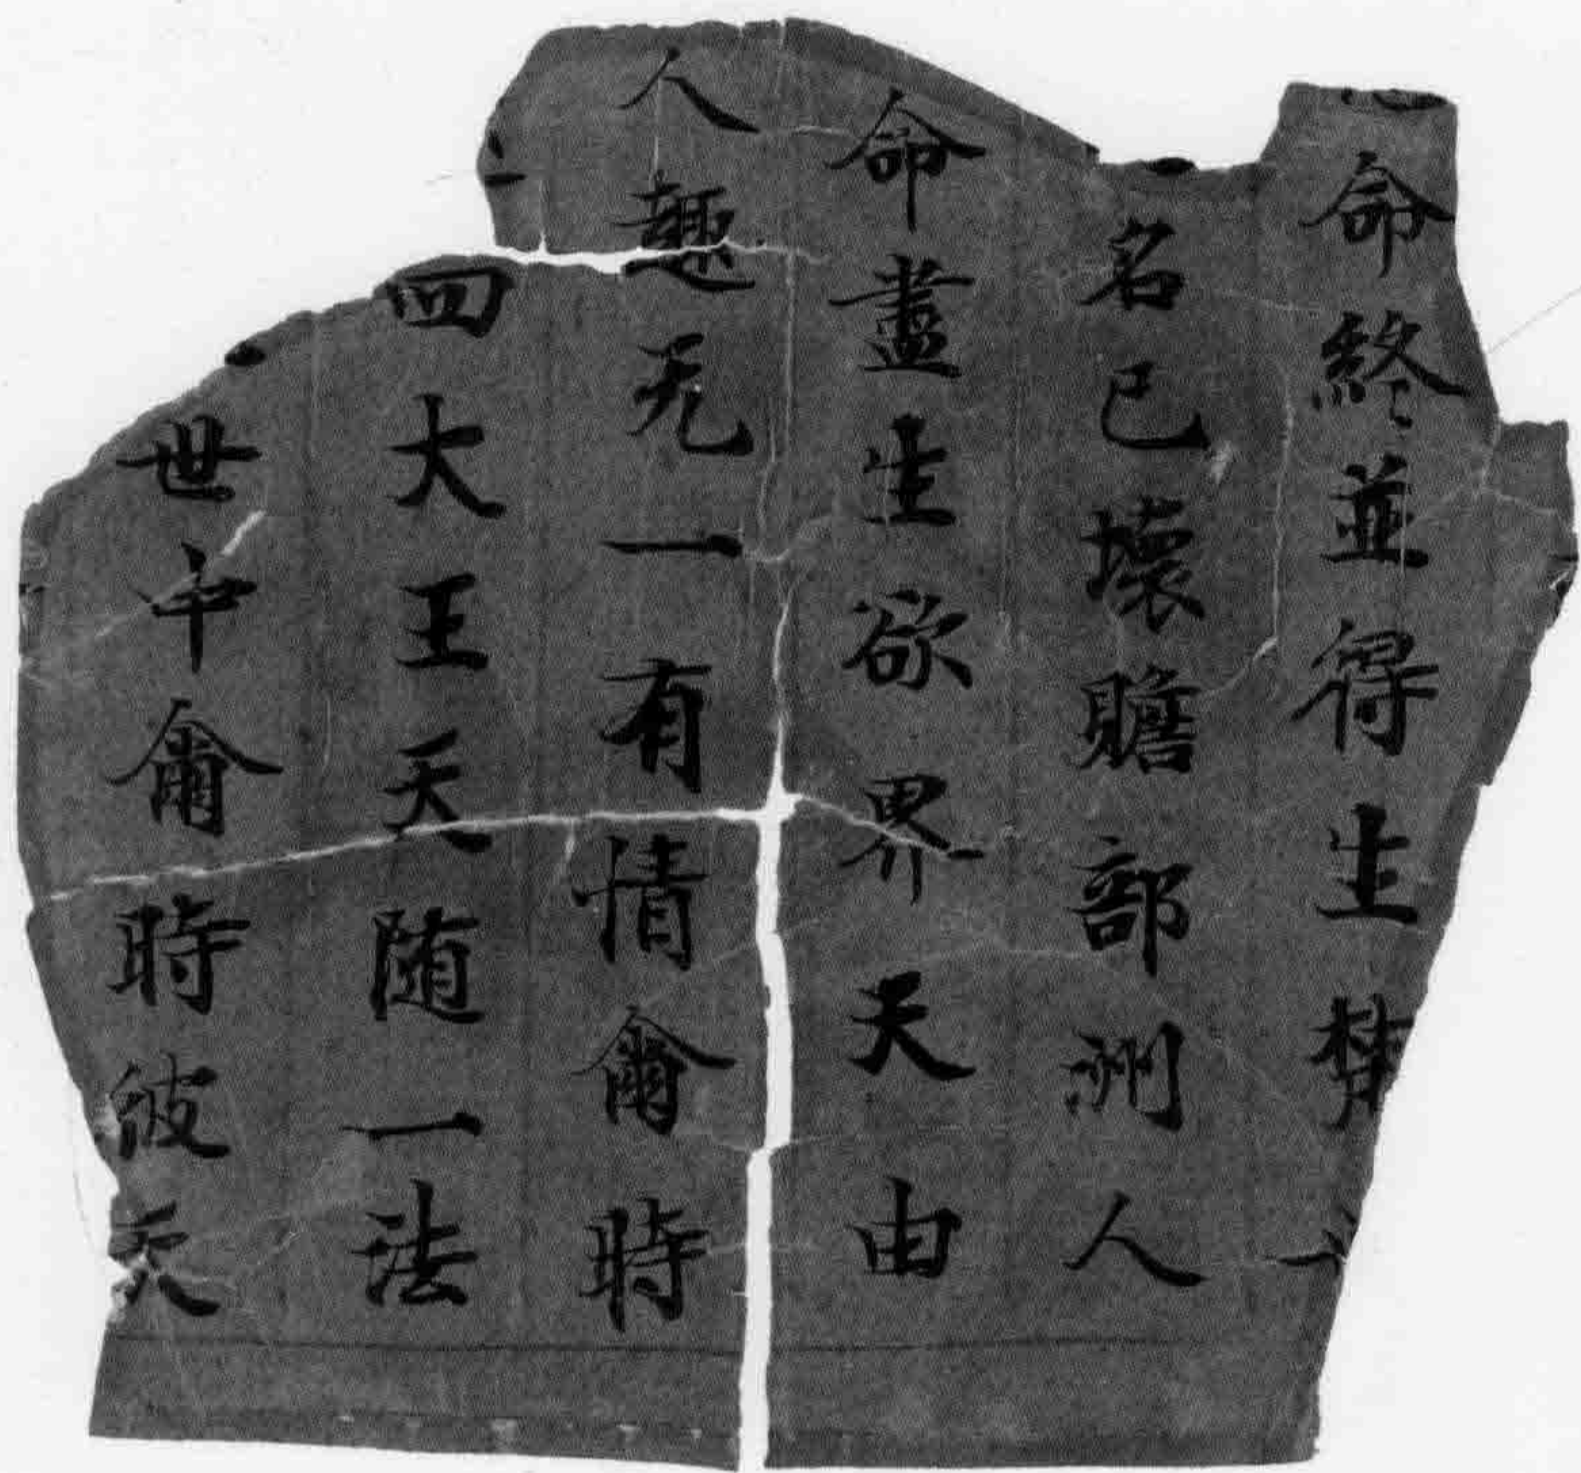 命終並得生梵
名已壞贍部洲人
命盡生欲界天由
人趣无一有情尒時
四大王天随一法
世中尒時彼天